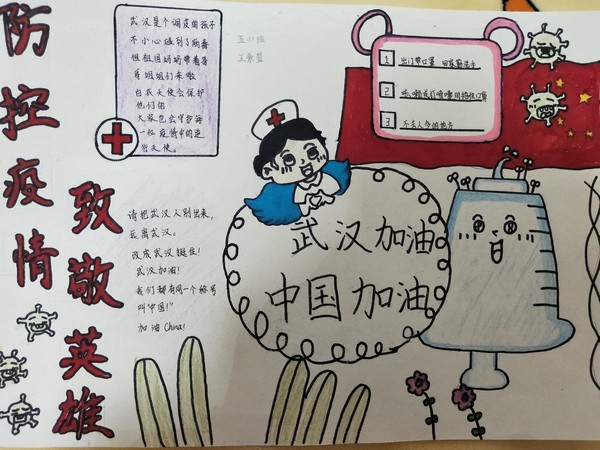 防控疫情
致敬英雄
武汉是个调皮的孩子
不小心碰到了病毒
但祖国妈妈带着哥
哥姐姐们来啦
白衣天使会保护
他们的
大家也会守护每
一位疫情中的逆
行天使。
1 出门带口罩 回家勤洗手
2 咳嗽或打喷嚏时捂住口鼻
3 不去人多的地方
请把武汉人别出来，
远离武汉。
改成武汉挺住！
武汉加油！
我们都有同一个称号
叫"中国！"
加油 China！
武汉加油
中国加油